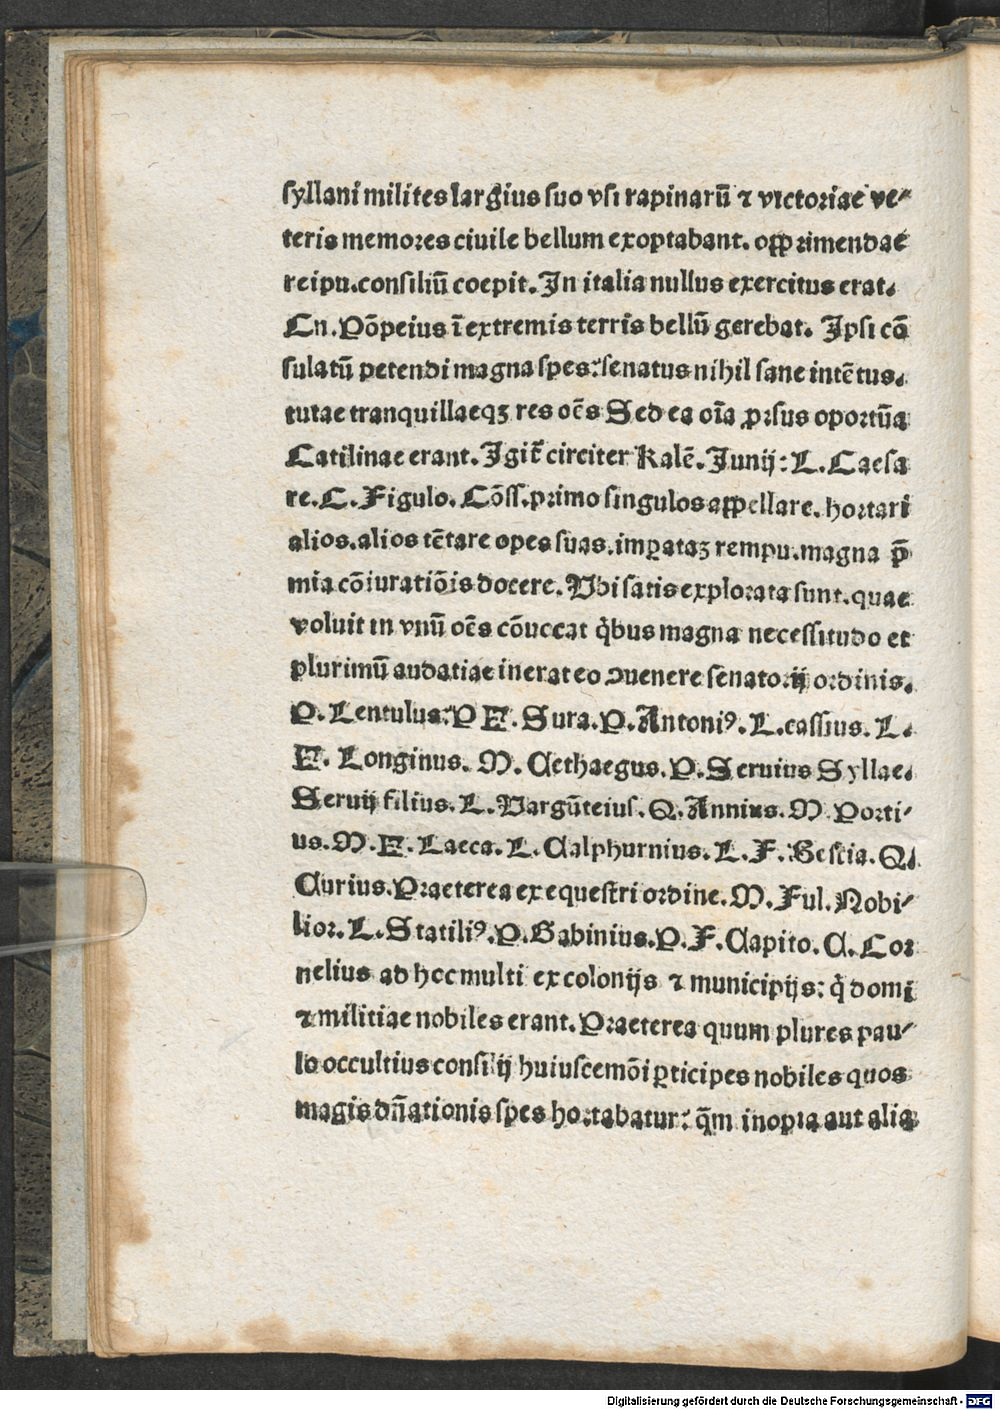 syllani milites largius suo vsi rapinarū ⁊ victoriae ve⸗
teris memores ciuile bellum exoptabant. opprimendae
reipu. consiliū coepit. In italia nullus exercitus erat.
Cn. Põpeius ī extremis terris bellū gerebat. Ipsi cō
sulatū petendi magna spes: senatus nihil sane intētus.
tutae tranquillaeqꝫ res oēs Sed ea oīa ꝓrsus oportūa
Catilinae erant. Igit̄ circiter Kalē. Junij: L. Caesa
re. C. Figulo. Cōss. primo singulos appellare. hortari
alios. alios tētare opes suas. imꝑataꝫ rempu. magna p̄
mia cōiuratiōis docere. Vbi satis explorata sunt. quae
voluit in vnū oēs cōuccat q̇bus magna necessitudo et
plurimū audatiae inerat eo ꝯuenere senatorij ordinis.
P. Lentulus: P E. Sura. P. Antoniꝰ. L. cassius. L.
E. Longinus. M. Cethaegus. P. Seruius Syllae.
Seruij filius. L. Vargūteius. Q. Annius. M Porti⸗
us. M. E. Laeca. L. Calphurnius. L. F. Bestia. Q.
Curius. Praeterea ex equestri ordine. M. Ful. Nobi⸗
lior. L. Statiliꝰ. P. Gabinius. P. F. Capito. C. Cor
nelius ad hcc multi ex colonijs ⁊ municipijs: q̇ domi
⁊ militiae nobiles erant. Praeterea quum plures pau⸗
lo occultius consilij huiuscemōi ꝑticipes nobiles quos
magis dn̄ationis spes hortabatur: q̄m inopia aut alia
Digitalisierung gefördert durch die Deutsche Forschungsgemeinschaft - DFG